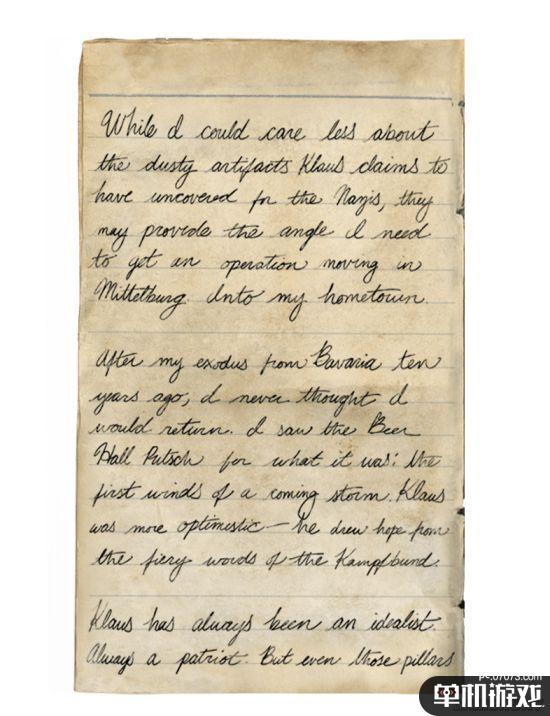 While I could care less about
the dusty artifacts Klaus claims to
have uncovered for the Nazis, they
may provide the angle I need
to get an operation moving in
Mittelburg. Into my hometown.
After my exodus from Bavaria ten
years ago, I never thought I
would return. I saw the Beer
Hall Putsch for what it was: the
first winds of a coming storm. Klaus
was more optimistic — he drew hope from
the fiery words of the Kampfbund.
Klaus has always been an idealist.
Always a patriot. But even those pillars
pc.07073.com
单机游戏